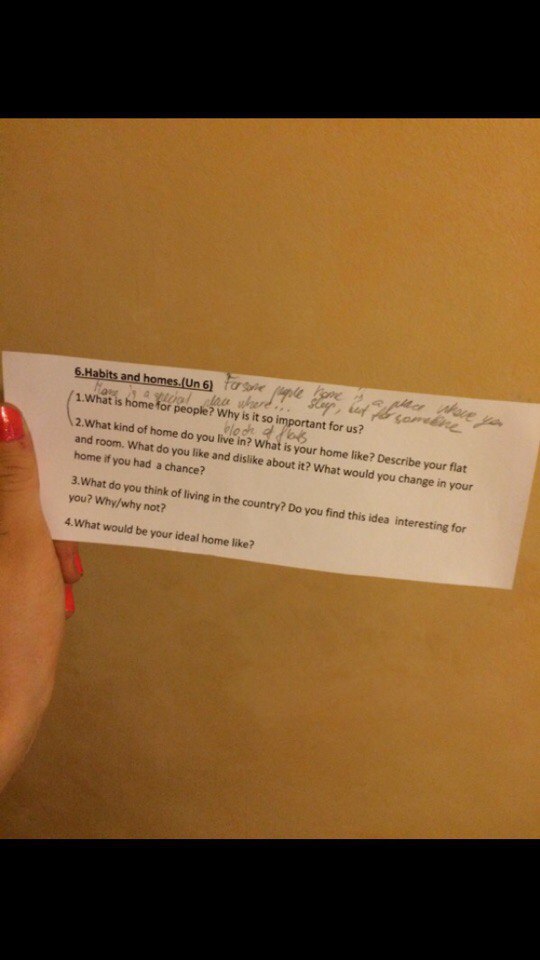 6.Habits and homes.(Un 6) For some people home is a place where you
Home is a special place where... sleep, but for someone
1.What is home for people? Why is it so important for us?
block of flats
2.What kind of home do you live in? What is your home like? Describe your flat
and room. What do you like and dislike about it? What would you change in your
home if you had a chance?
3.What do you think of living in the country? Do you find this idea interesting for
you? Why/why not?
4.What would be your ideal home like?